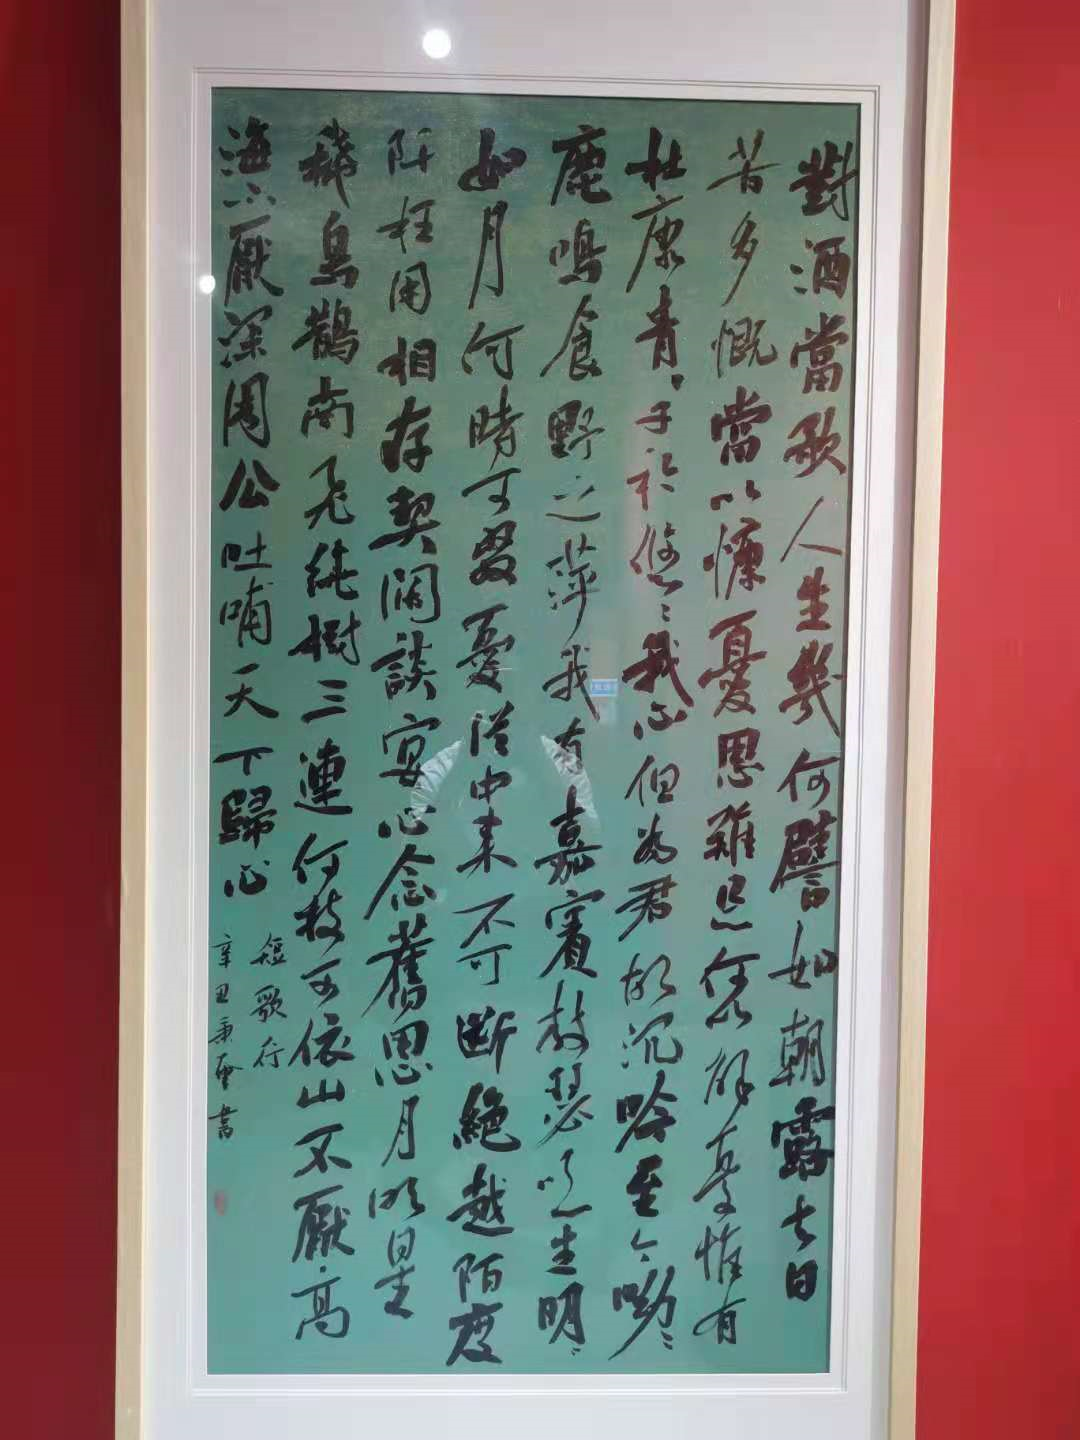 對酒當歌人生幾何譬如朝露去日
苦多慨當以慷憂思難忘何以解憂惟有
杜康青〻子衿悠〻我心但為君故沉吟至今呦〻
鹿鳴食野之萍我有嘉賓鼓瑟吹生明〻
如月何時可掇憂從中來不可斷絕越陌度
阡枉用相存契闊談宴心念舊恩月明星
稀烏鵲南飛繞樹三連何枝可依山不厭高
海不厭深周公吐哺天下歸心
短歌行
辛丑秉書